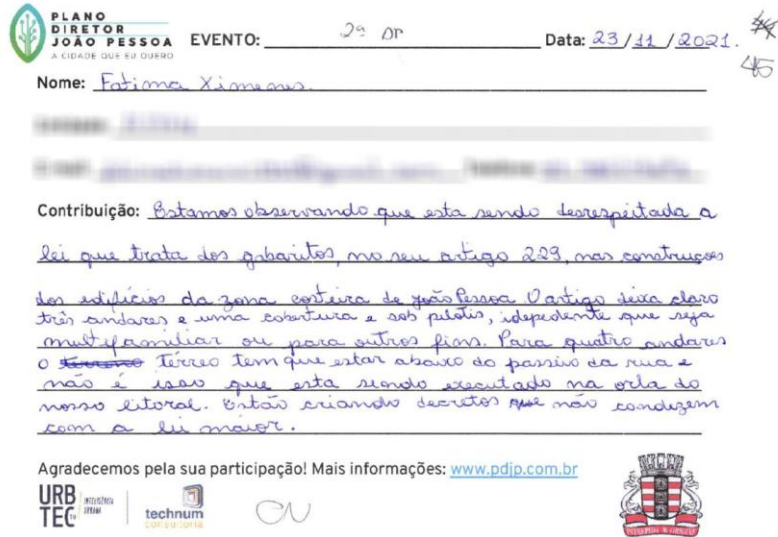 PLANO
DIRETOR
JOÃO PESSOA
A CIDADE QUE EU QUERO
EVENTO: 2ª DP Data: 23/11/2021.
45
Nome: Fatima Ximenes.
Contribuição: Estamos observando que esta sendo desrespeitada a
lei que trata dos gabaritos, no seu artigo 229, nas construçoes
dos edifícios da zona costeira de João Pessoa. O artigo deixa claro
três andares e uma cobertura e sob pilotis, idepedente que seja
multifamiliar ou para outros fins. Para quatro andares
o terreno térreo tem que estar abaixo do passeio da rua e
não é isso que esta sendo executado na orla do
nosso litoral. Estão criando decretos que não condizem
com a lei maior.
Agradecemos pela sua participação! Mais informações: www.pdjp.com.br
URB
TEC
INTELIGÊNCIA
URBANA
technum
consultoria
CN